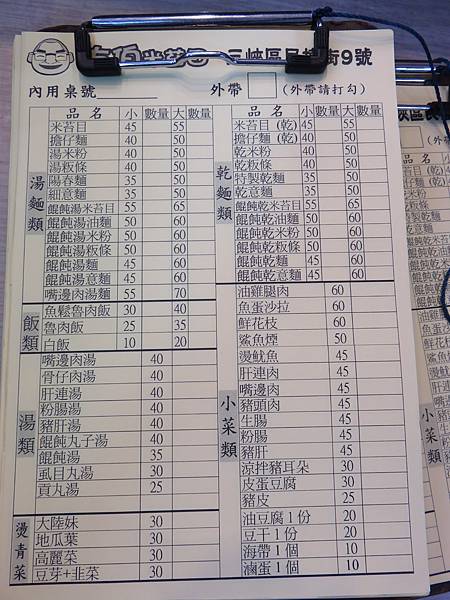 米苔目 三峽區民權街9號
內用桌號 外帶 (外帶請打勾)
品名 小 數量 大 數量
湯麵類
米苔目 45 55
擔仔麵 40 50
湯米粉 40 50
湯粄條 40 50
陽春麵 35 50
細意麵 35 50
餛飩湯米苔目 55 65
餛飩湯油麵 50 60
餛飩湯米粉 50 60
餛飩湯粄條 50 60
餛飩湯麵 45 60
餛飩湯意麵 45 60
嘴邊肉湯麵 55 70
飯類
魚鬆魯肉飯 30 40
魯肉飯 25 35
白飯 10 20
湯類
嘴邊肉湯 40
骨仔肉湯 40
肝連湯 40
粉腸湯 40
豬肝湯 40
餛飩丸子湯 40
餛飩湯 35
虱目丸湯 30
貢丸湯 25
燙青菜
大陸妹 30
地瓜葉 30
高麗菜 30
豆芽+韭菜 30
品名 小 數量 大 數量
乾麵類
米苔目 (乾) 45 55
擔仔麵 (乾) 40 50
乾米粉 40 50
乾粄條 40 50
特製乾麵 35 50
乾意麵 35 50
餛飩乾米苔目 55 65
餛飩乾油麵 50 60
餛飩乾米粉 50 60
餛飩乾粄條 50 60
餛飩乾麵 45 60
餛飩乾意麵 45 60
小菜類
油雞腿肉 60
魚蛋沙拉 60
鮮花枝 60
鯊魚煙 50
燙魷魚 45
肝連肉 45
嘴邊肉 45
豬頭肉 45
生腸 45
粉腸 45
豬肝 45
涼拌豬耳朵 30
皮蛋豆腐 30
豬皮 25
油豆腐1份 20
豆干1份 20
海帶1個 10
滷蛋1個 10